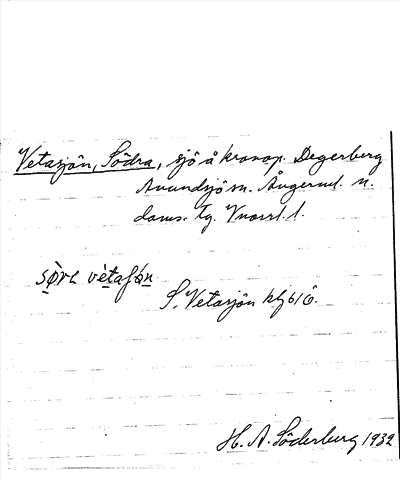 Vetasjön, Södra, sjö å kronop. Degerberg
Anundsjö sn. Ångerml. n.
doms. tg. Vnorrl. l.
sø̀rɐ vètaʃón
S. Vetasjön kbl 61 Ö.
H. A. Söderburg 1932